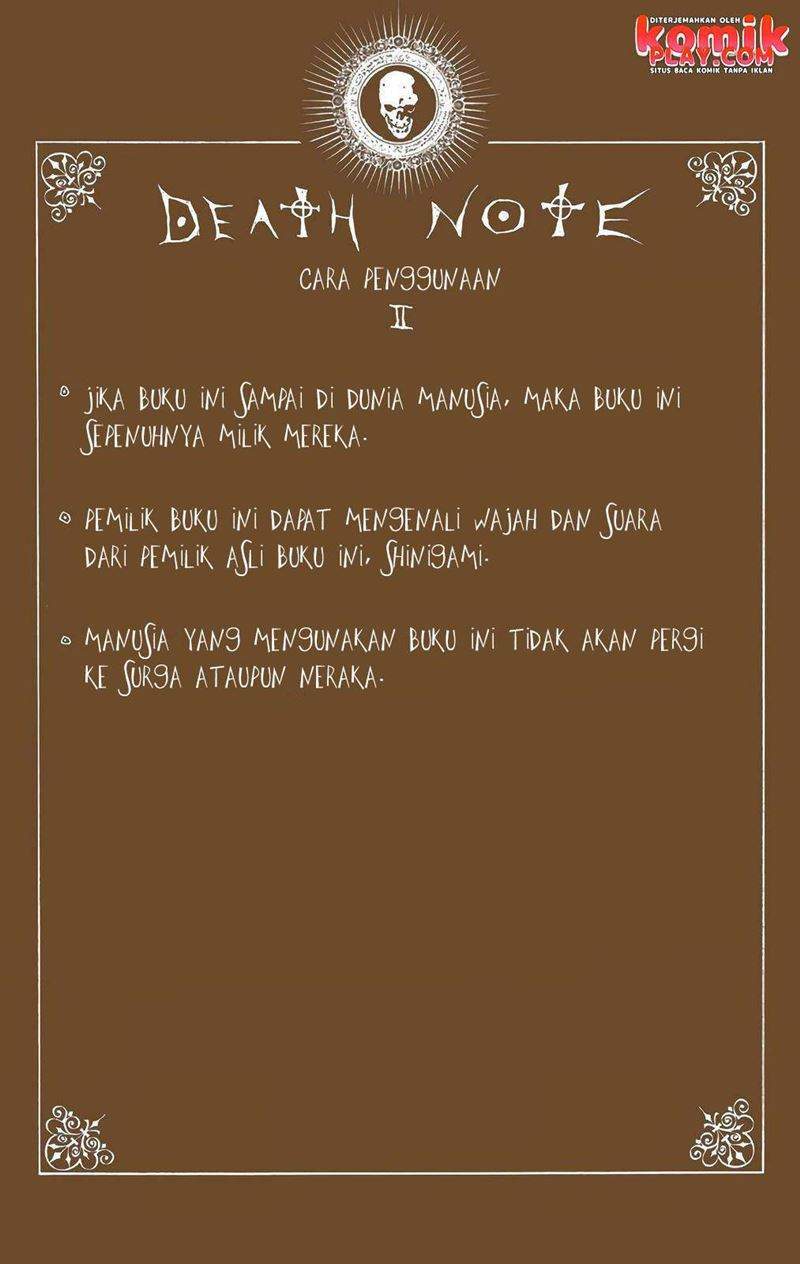 DITERJEMAHKAN OLEH
komik
PLAY.COM
SITUS BACA KOMIK TANPA IKLAN
DEATH NOTE
CARA PENGGUNAAN
II
JIKA BUKU INI SAMPAI DI DUNIA MANUSIA, MAKA BUKU INI
SEPENUHNYA MILIK MEREKA.
PEMILIK BUKU INI DAPAT MENGENALI WAJAH DAN SUARA
DARI PEMILIK ASLI BUKU INI, SHINIGAMI.
MANUSIA YANG MENGUNAKAN BUKU INI TIDAK AKAN PERGI
KE SURGA ATAUPUN NERAKA.